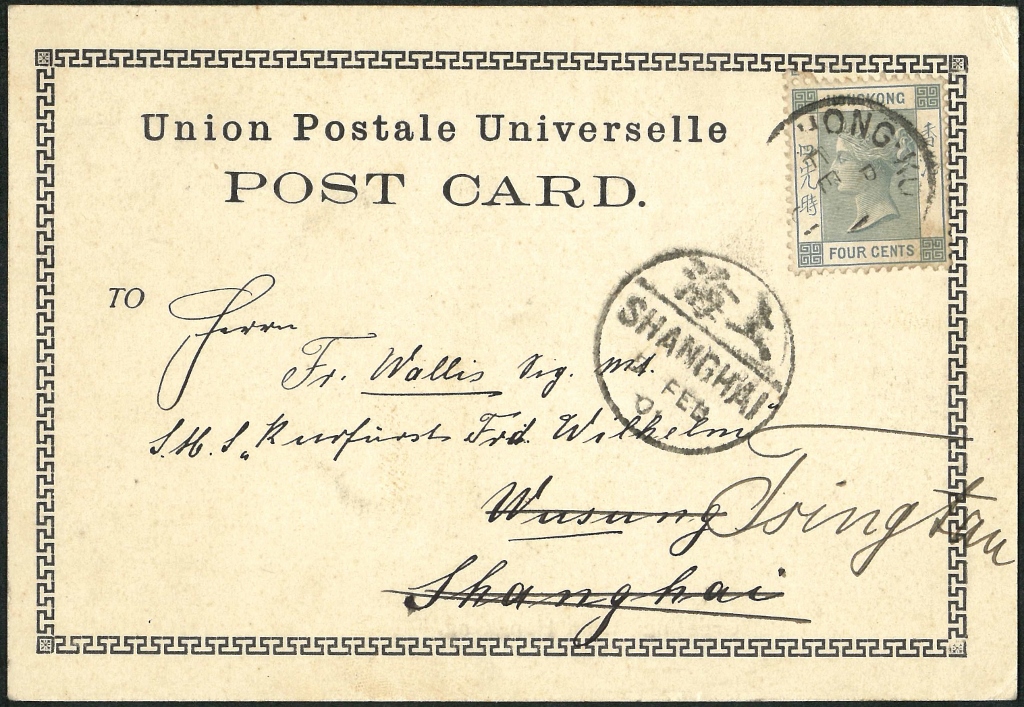 Union Postale Universelle
POST CARD.
HONGKONG
香
時
FOUR CENTS
HONG
上海
SHANGHAI
FEB
01
TO
Herrn
Fr. Wallis Sig. Mt.
S.M.S. „Kurfürst Frd. Wilhelm"
Wusung Tsingtau
Shanghai